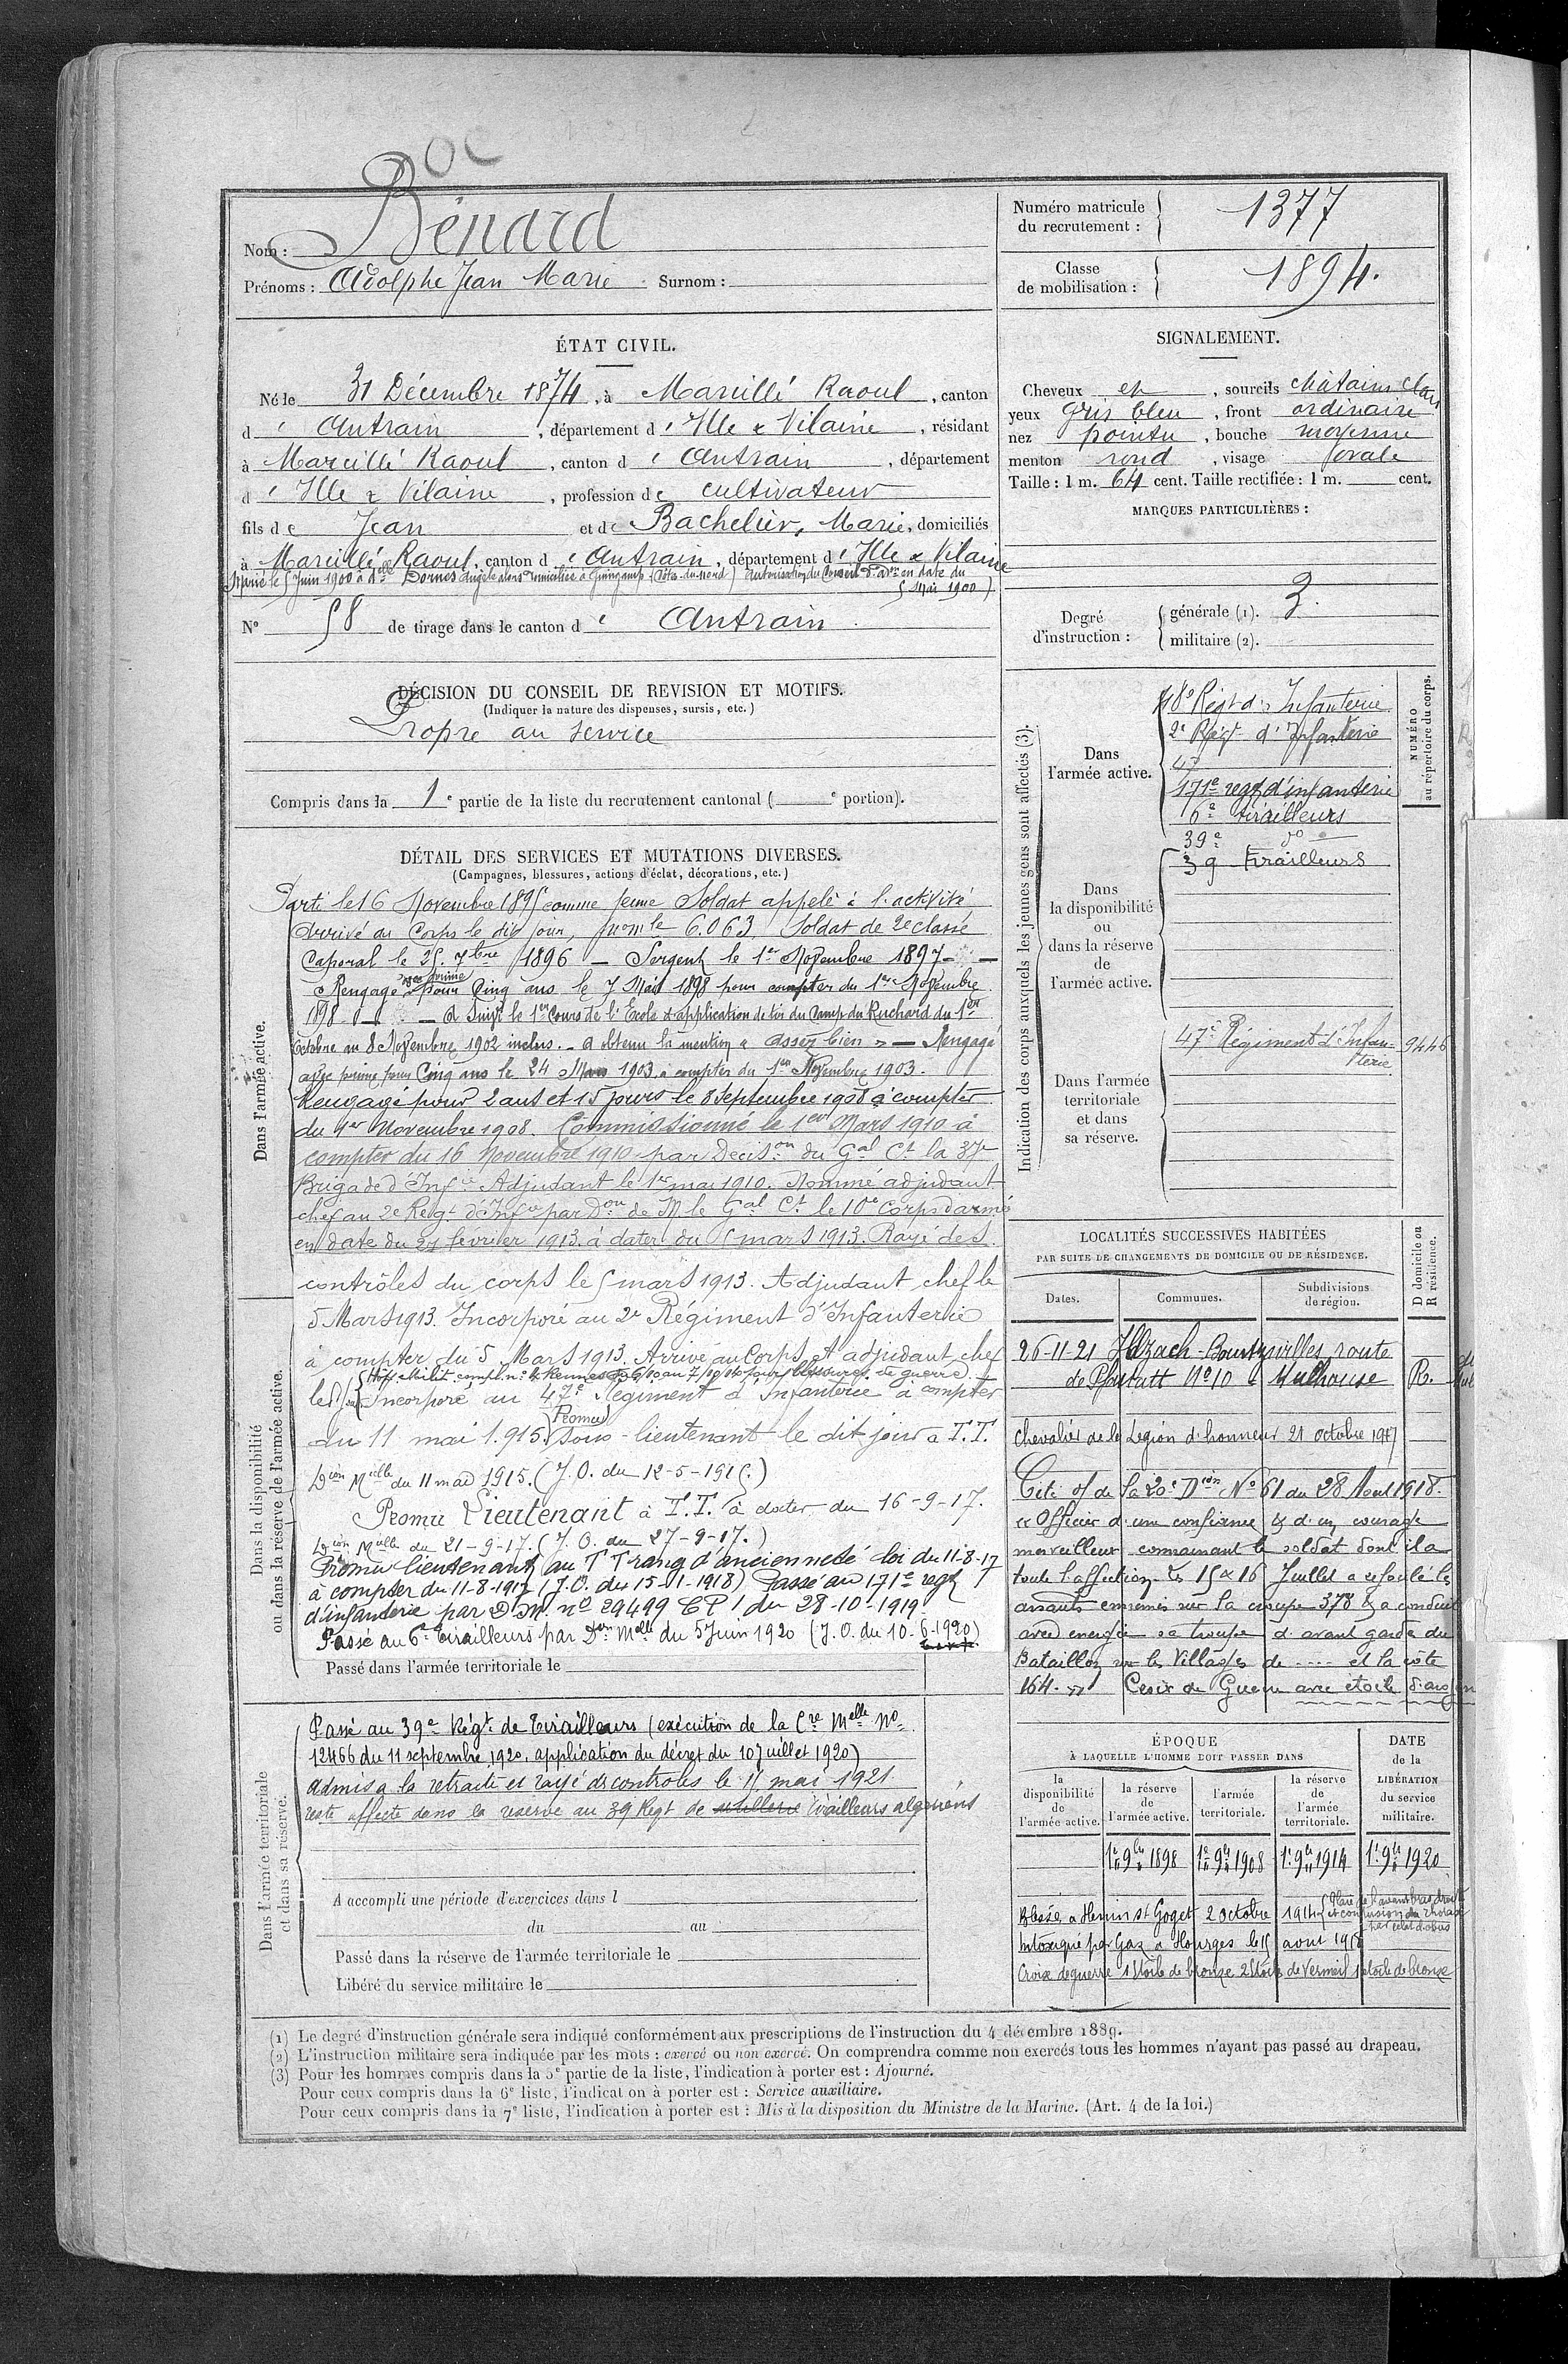 Nom : Bénard
Prénoms : Adolphe Jean Marie Surnom :
Numéro matricule du recrutement : 1377
Classe de mobilisation : 1894.
ÉTAT CIVIL.
Né le 31 Décembre 1874, à Marcillé Raoul, canton
d' Antrain, département d' Ille & Vilaine, résidant
à Marcillé Raoul, canton d' Antrain, département
d' Ille & Vilaine, profession de cultivateur
fils de Jean et de Bachelier, Marie, domiciliés
à Marcillé Raoul, canton d' Antrain, département d' Ille & Vilaine
Marié le 5 Juin 1900 à Delle Dornes Angèle alors domiciliée à Guingamp (Côtes-du-Nord) Autorisation du Conseil d'Aon en date du
5 Mai 1900)
N° 58 de tirage dans le canton d' Antrain.
DÉCISION DU CONSEIL DE REVISION ET MOTIFS.
(Indiquer la nature des dispenses, sursis, etc.)
Propre au service
Compris dans la 1e partie de la liste du recrutement cantonal ( e portion).
DÉTAIL DES SERVICES ET MUTATIONS DIVERSES.
(Campagnes, blessures, actions d'éclat, décorations, etc.)
Dans l'armée active.
Parti le 16 Novembre 1895 comme jeune Soldat appelé à l'activité
Arrivé au Corps le dit jour, nomle 6.063 Soldat de 2e classe
Caporal le 25. 7bre 1896 — Sergent le 1er Novembre 1897 —
Rengagé avec prime pour Cinq ans le 7 Mai 1898 pour compter du 1er Novembre
1898 — A Suivi le 1er Cours de l'Ecole d'application de tir du Camp du Ruchard du 1er
Octobre au 8 Novembre 1902 inclus. — A obtenu la mention « assez bien » — Rengagé
avec prime pour Cinq ans le 24 Mars 1903 à compter du 1er Novembre 1903.
Rengagé pour 2 ans et 15 jours le 8 Septembre 1908 à compter
du 1er Novembre 1908. Commissionné le 1er Mars 1910 à
compter du 16 Novembre 1910 par Decison du Gal Ct la 37e
Brigade d'Infie Adjudant le 1er mai 1910. Nommé adjudant
chef au 2e Regt d'Infie par Don de M le Gal Ct le 10e Corps d'armée
en date du 24 février 1913 à dater du 5 mars 1913. Rayé des
contrôles du corps le 5 mars 1913. Adjudant chef le
5 Mars 1913. Incorporé au 2e Régiment d'Infanterie
à compter du 5 Mars 1913. Arrivé au Corps et adjudant chef
Hôp militr compl. n° 4 Rennes du 6/10 au 7/10/14 pour blessures de guerre.
le dit jour Incorporé au 47e Régiment d'Infanterie à compter
du 11 mai 1.915. Promu sous-lieutenant le dit jour à T.T.
Dion Mielle du 11 mai 1915. (J.O. du 12-5-1915.)
Promu Lieutenant à T.T. à dater du 16-9-17.
Dion Mielle du 21-9-17. (J.O. du 27-9-17.)
Promu lieutenant au T T rang d'ancienneté loi du 11-8-17
à compter du 11-8-1917 (J.O. du 15-1-1918) Passé au 171e regt
d'infanterie par D.M. n° 29499 CP1 du 28-10-1919.
Passé au 6e Tirailleurs par Don Melle du 5 Juin 1920 (J.O. du 10-6-1920)
Dans la disponibilité
ou dans la réserve de l'armée active.
Passé dans l'armée territoriale le
Dans l'armée territoriale
et dans sa réserve.
Passé au 39e Régt de Tirailleurs (exécution de la Cre Melle N°
12466 du 11 septembre 1920, application du décret du 10 juillet 1920)
admis a la retraite et rayé des controles le 15 mai 1921
reste affecté dans la reserve au 39 Regt de tirailleurs algeriens
A accompli une période d'exercices dans l
du au
Passé dans la réserve de l'armée territoriale le
Libéré du service militaire le
SIGNALEMENT.
Cheveux et, sourcils châtains clairs
yeux gris bleu, front ordinaire
nez pointu, bouche moyenne
menton rond, visage ovale
Taille : 1 m. 64 cent. Taille rectifiée : 1 m. cent.
MARQUES PARTICULIÈRES :
Degré d'instruction : générale (1). 3.
militaire (2).
Indication des corps auxquels les jeunes gens sont affectés (3).
NUMÉRO
au répertoire du corps.
Dans l'armée active.
48e Régt d'Infanterie
2e Régt d'Infanterie
47
171e regt d'infanterie
6e tirailleurs
39e do
39 tirailleurs
Dans la disponibilité ou dans la réserve de l'armée active.
Dans l'armée territoriale et dans sa réserve.
47e Régiment d'Infan- 9446
terie
LOCALITÉS SUCCESSIVES HABITÉES
PAR SUITE DE CHANGEMENTS DE DOMICILE OU DE RÉSIDENCE.
Dates. Communes. Subdivisions de région. D domicile ou R résidence.
26-11-21 Illzach-Bourtzwiller, route
de Pfastatt N° 10 Mulhouse R.
Chevalier de la Légion d'honneur 21 octobre 1917
Cité o/ de la 20e Dion N° 61 du 28 Aout 1918.
« Officier d'une confiance & d'un courage
merveilleux connaissant le soldat dont il a
toute l'affection. Les 15 & 16 Juillet a refoulé les
assauts ennemis sur la croupe 378 & a conduit
avec energie sa troupe d'avant garde du
Bataillon sur les Villages de .... et la côte
164. » Croix de Guerre avec étoile d'argent
ÉPOQUE
À LAQUELLE L'HOMME DOIT PASSER DANS
DATE de la LIBÉRATION du service militaire.
la disponibilité de l'armée active. la réserve de l'armée active. l'armée territoriale. la réserve de l'armée territoriale.
1er 9bre 1898 1er 9bre 1908 1er 9bre 1914 1er 9bre 1920
Blessé a Henin St Goget 2 octobre 1914 (Plaie de l'avant bras droit
et contusion du thorax
par eclat d'obus
Intoxiqué par Gaz a Hourges le 15 aout 1918
Croix de guerre 1 étoile de bronze 2 étoiles de vermeil 1 etoile de bronze
(1) Le degré d'instruction générale sera indiqué conformément aux prescriptions de l'instruction du 4 décembre 1889.
(2) L'instruction militaire sera indiquée par les mots : exercé ou non exercé. On comprendra comme non exercés tous les hommes n'ayant pas passé au drapeau.
(3) Pour les hommes compris dans la 5e partie de la liste, l'indication à porter est : Ajourné.
Pour ceux compris dans la 6e liste, l'indication à porter est : Service auxiliaire.
Pour ceux compris dans la 7e liste, l'indication à porter est : Mis à la disposition du Ministre de la Marine. (Art. 4 de la loi.)